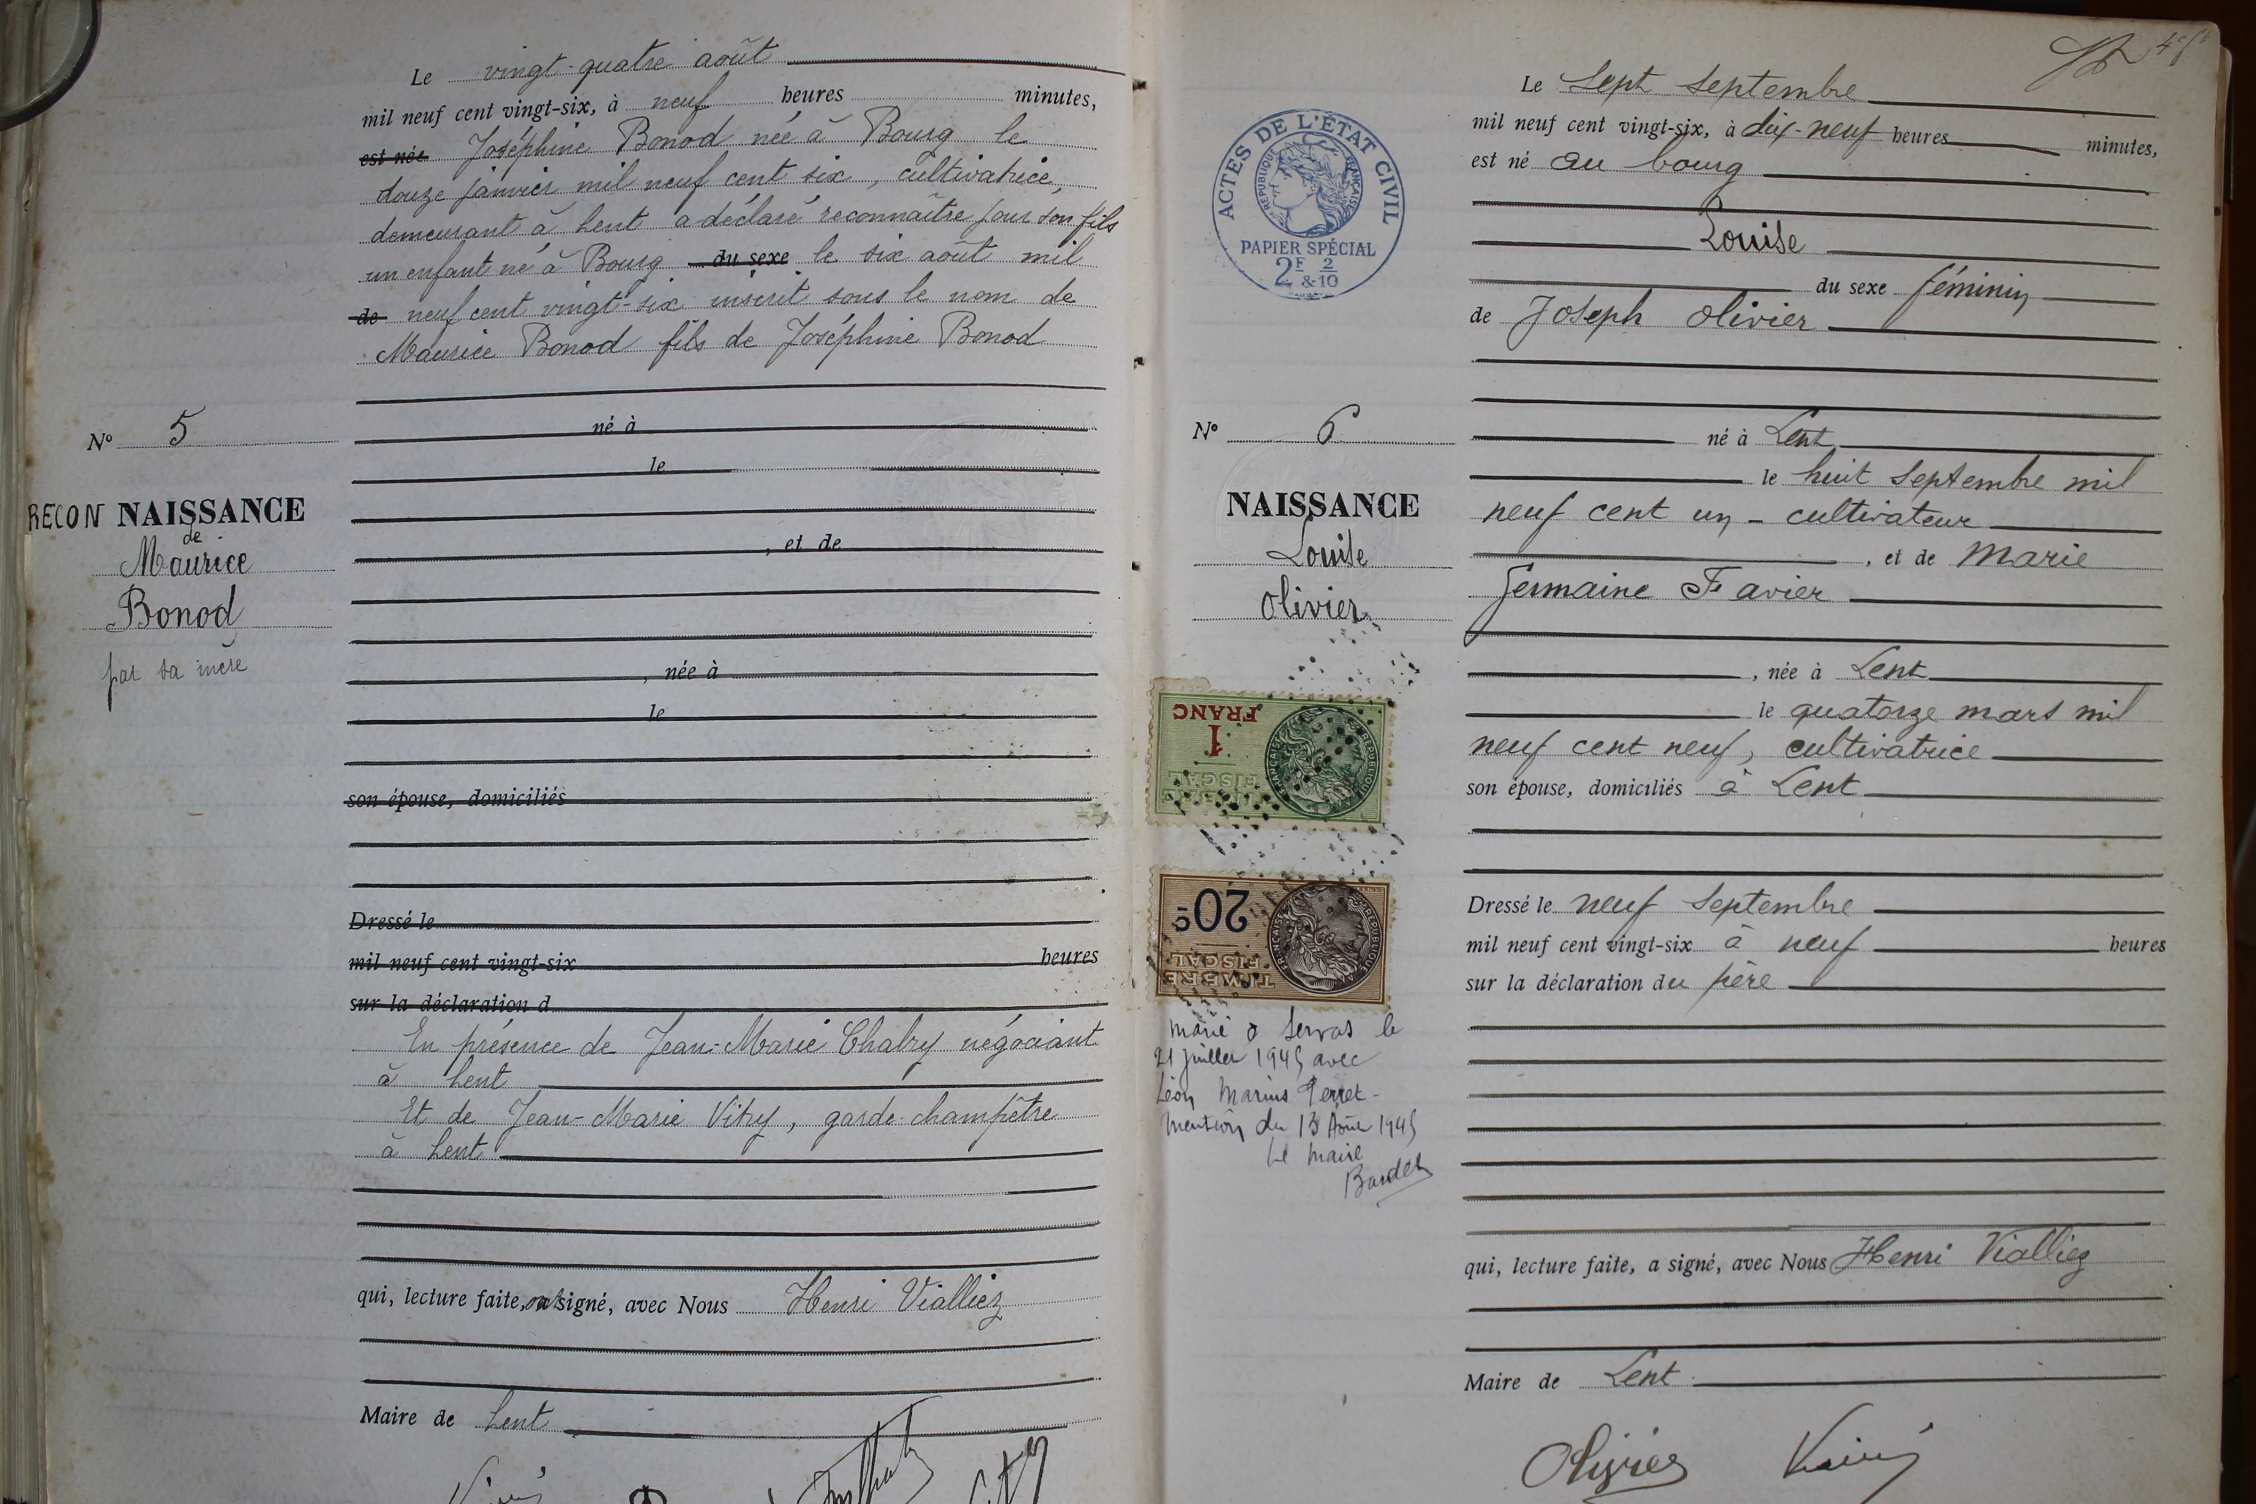 Le vingt-quatre août
mil neuf cent vingt-six, à neuf heures minutes,
est née Joséphine Bonod née à Bourg le
douze janvier mil neuf cent six, cultivatrice,
demeurant à Lent a déclaré reconnaître pour son fils
un enfant né à Bourg du sexe le six août mil
de neuf cent vingt-six inscrit sous le nom de
Maurice Bonod fils de Joséphine Bonod
né à
le
, et de
, née à
le
son épouse, domiciliés
Dressé le
mil neuf cent vingt-six heures
sur la déclaration d
En présence de Jean-Marie Chabry négociant
à Lent
Et de Jean-Marie Vitry, garde-champêtre
à Lent
qui, lecture faite, ont signé, avec Nous Henri Vialliez
Maire de Lent
N° 5
RECONNAISSANCE
de
Maurice
Bonod
par sa mère
ACTES DE L'ÉTAT CIVIL
RÉPUBLIQUE FRANÇAISE
PAPIER SPÉCIAL
2F 2
&10
N° 6
NAISSANCE
Louise
Olivier
1
FRANC
FISCAL
RÉPUBLIQUE FRANÇAISE
20c
TIMBRE
FISCAL
RÉPUBLIQUE FRANÇAISE
marié à Servas le
21 juillet 1945 avec
Léon Marius Perret -
Mention du 13 Août 1945
Le Maire
Le sept septembre
mil neuf cent vingt-six, à dix-neuf heures minutes,
est né au bourg
Louise
du sexe féminin
de Joseph Olivier
né à Lent
le huit septembre mil
neuf cent un - cultivateur
, et de Marie
Germaine Favier
, née à Lent
le quatorze mars mil
neuf cent neuf, cultivatrice
son épouse, domiciliés à Lent
Dressé le neuf septembre
mil neuf cent vingt-six à neuf heures
sur la déclaration du père
qui, lecture faite, a signé, avec Nous Henri Vialliez
Maire de Lent
Olivier